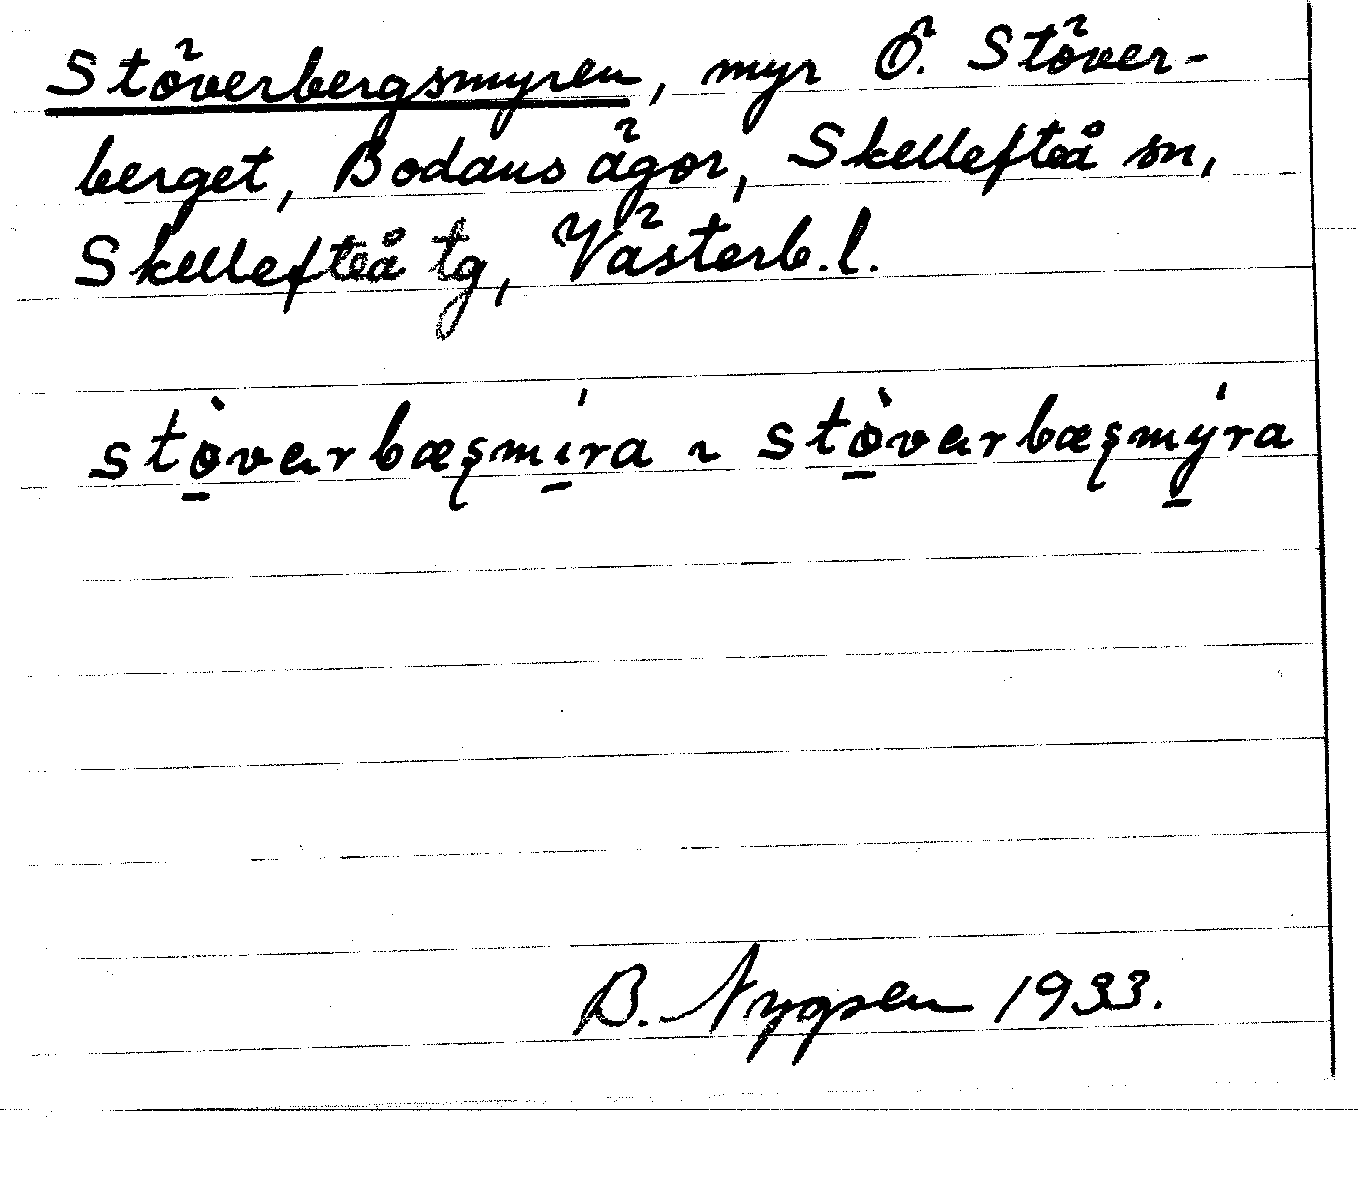 Stöverbergsmyren, myr Ö. Stöver-
berget, Bodans ägor, Skellefteå sn,
Skellefteå tg, Västerb.l.
stö̀varbæşmíra ~ stö̀varbæşmýra
B. Nygren 1933.